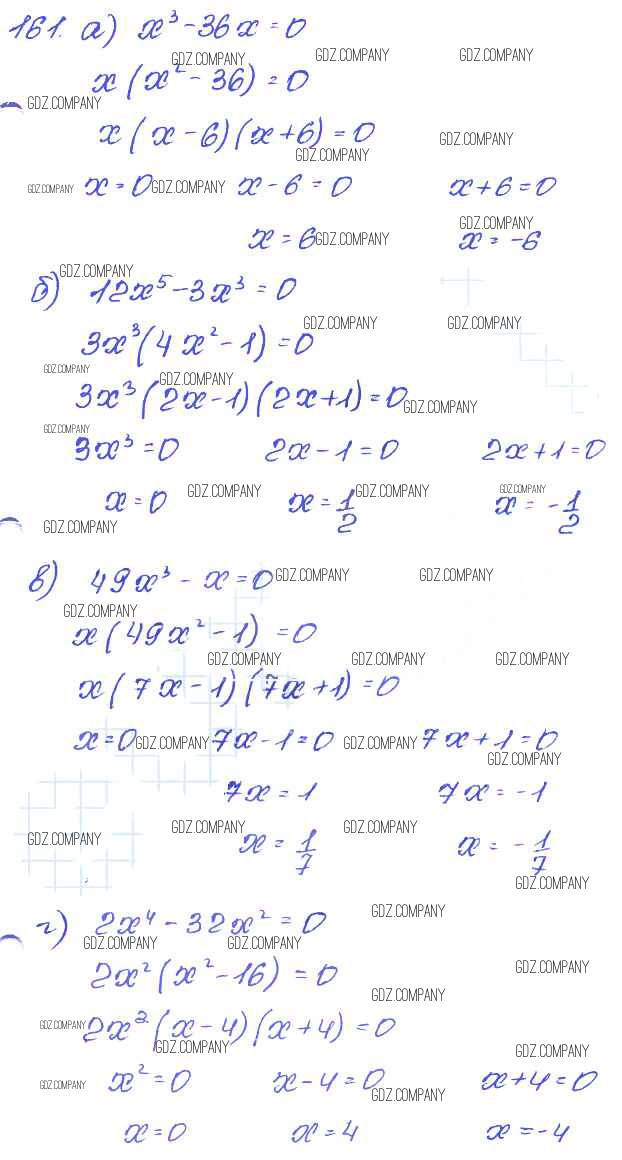 161. а) x³ - 36x = 0
GDZ.COMPANY GDZ.COMPANY GDZ.COMPANY
x(x² - 36) = 0
GDZ.COMPANY
x(x - 6)(x + 6) = 0
GDZ.COMPANY
GDZ.COMPANY
GDZ.COMPANY x = 0 GDZ.COMPANY x - 6 = 0 x + 6 = 0
GDZ.COMPANY
x = 6 GDZ.COMPANY x = -6
GDZ.COMPANY
б) 12x⁵ - 3x³ = 0
GDZ.COMPANY GDZ.COMPANY
3x³(4x² - 1) = 0
GDZ.COMPANY
GDZ.COMPANY
3x³(2x - 1)(2x + 1) = 0 GDZ.COMPANY
GDZ.COMPANY
3x³ = 0 2x - 1 = 0 2x + 1 = 0
GDZ.COMPANY GDZ.COMPANY GDZ.COMPANY
x = 0 x = 1/2 x = -1/2
GDZ.COMPANY
в) 49x³ - x = 0 GDZ.COMPANY GDZ.COMPANY
GDZ.COMPANY
x(49x² - 1) = 0
GDZ.COMPANY GDZ.COMPANY GDZ.COMPANY
x(7x - 1)(7x + 1) = 0
x = 0 GDZ.COMPANY 7x - 1 = 0 GDZ.COMPANY 7x + 1 = 0
GDZ.COMPANY
7x = 1 7x = -1
GDZ.COMPANY GDZ.COMPANY GDZ.COMPANY
x = 1/7 x = -1/7
GDZ.COMPANY
GDZ.COMPANY
г) 2x⁴ - 32x² = 0
GDZ.COMPANY GDZ.COMPANY
2x²(x² - 16) = 0 GDZ.COMPANY
GDZ.COMPANY
GDZ.COMPANY 2x²(x - 4)(x + 4) = 0
GDZ.COMPANY GDZ.COMPANY
GDZ.COMPANY x² = 0 x - 4 = 0 x + 4 = 0
GDZ.COMPANY
x = 0 x = 4 x = -4